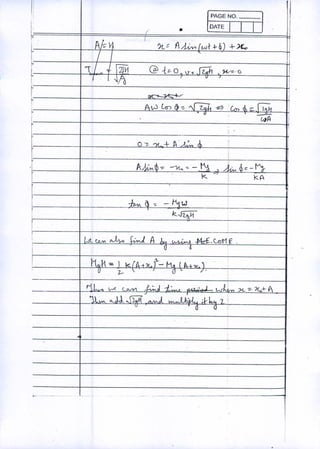 PAGE NO.
DATE
x = A sin (ωt + ϕ) + x₀
@ t = 0, v = √2gH, x = 0
Aω Cos ϕ = √2gH ⇒ Cos ϕ = √2gH / ωA
0 = x₀ + A sin ϕ
A sin ϕ = -x₀ = - Mg / K ⇒ sin ϕ = - Mg / KA
tan ϕ = - Mgω / K√2gH
we can also find A by using McE. CoME.
MgH = 1/2 K(A+x₀)² - Mg (A+x₀).
Thus we can find time period when x = x₀ + A
Then add and multiply it by 2